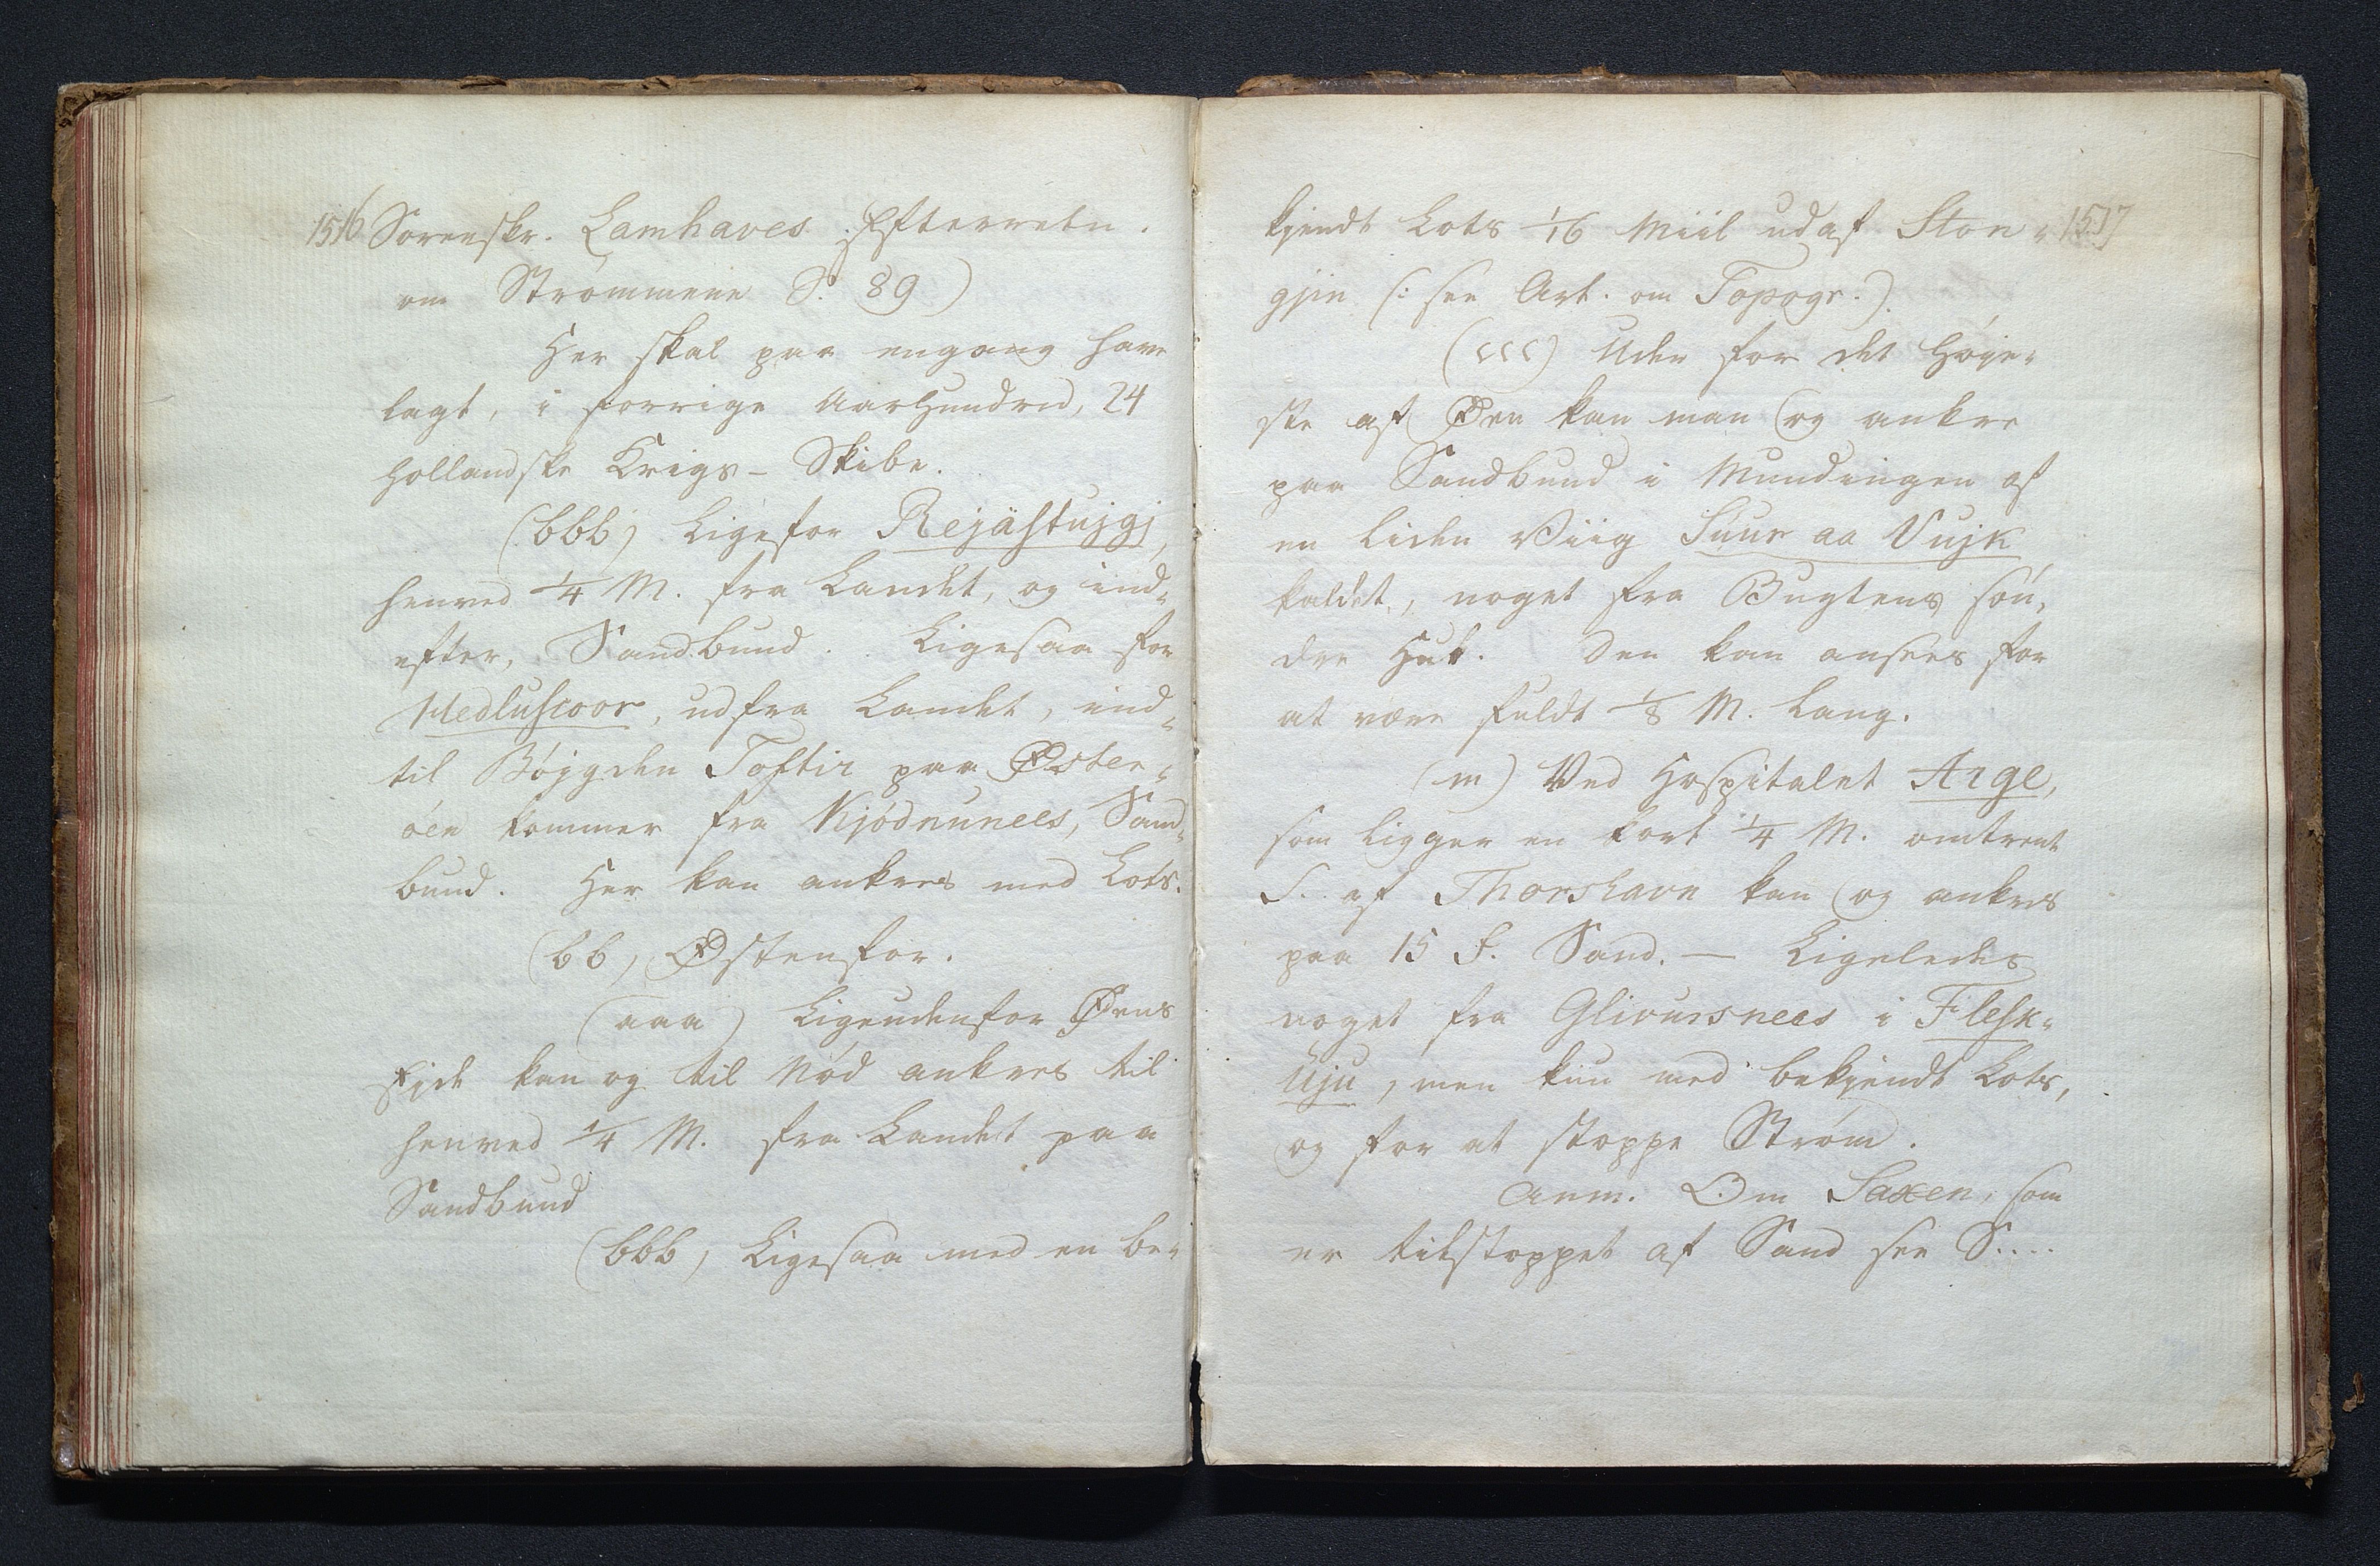 1516 Sorenskr. Lamhaves Efterretn.
om Strømmene S. 89)
Her skal paa engang have
lagt, i forrige Aarhundred, 24
hollandske Krigs-Skibe.
(bbb) Ligefor Rejästujgj,
henved 1/4 M. fra Landet, og ind-
efter, Sandbund. Ligesaa for
Hedluscoor, udfra Landet, ind-
til Bøjgden Toftir paa Øster-
öen kommer fra Kjödnunees, Sand-
bund. Her kan ankres med Lots.
(bb) Østenfor.
(aaa) Ligeudenfor Øens
Ejde kan og til Nød ankres til
henved 1/4 M. fra Landet paa
Sandbund
(bbb) Ligesaa med en be-
kjendt Lots 1/16 Miil udaf Ston- 1517
gjin (: see Art. om Topogr.)
(ccc) Uden for det Høje-
ste af Øen kan man og ankre
paa Sandbund i Mundingen af
en liden Viig Suur aa Vujk
kaldet, noget fra Bugtens søn,
dre Huk. Den kan ansees for
at være fuldt 1/8 M. lang.
(m) Ved Hospitalet Arge,
som ligger en kort 1/4 M. omtrent
S. af Thorshavn kan og ankres
paa 15 F. Sand. — Ligeledes
noget fra Glivursnees i Flesk-
Uju, men kun med bekjendt Lots,
og for at stoppe Strøm.
Anm. Om Saxen, som
er tilstoppet af Sand see S....